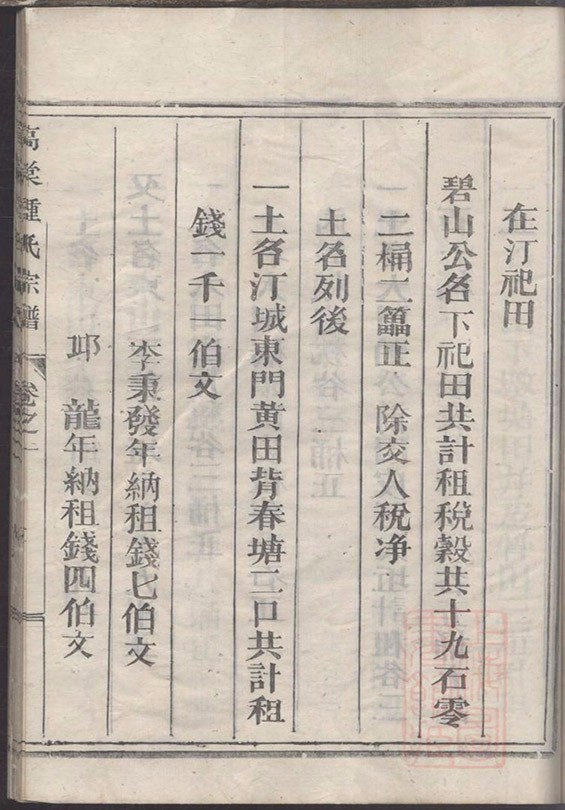 在汀祀田
碧山公名下祀田共計租稅穀共十九石零
二桶二籮正 除交人稅净
土名列後
一土名汀城東門黄田背春塘二口共計租
錢一千一伯文
李秉發年納租錢七伯文
邛 龍年納租錢四伯文
高棠鍾氏宗譜 卷之二